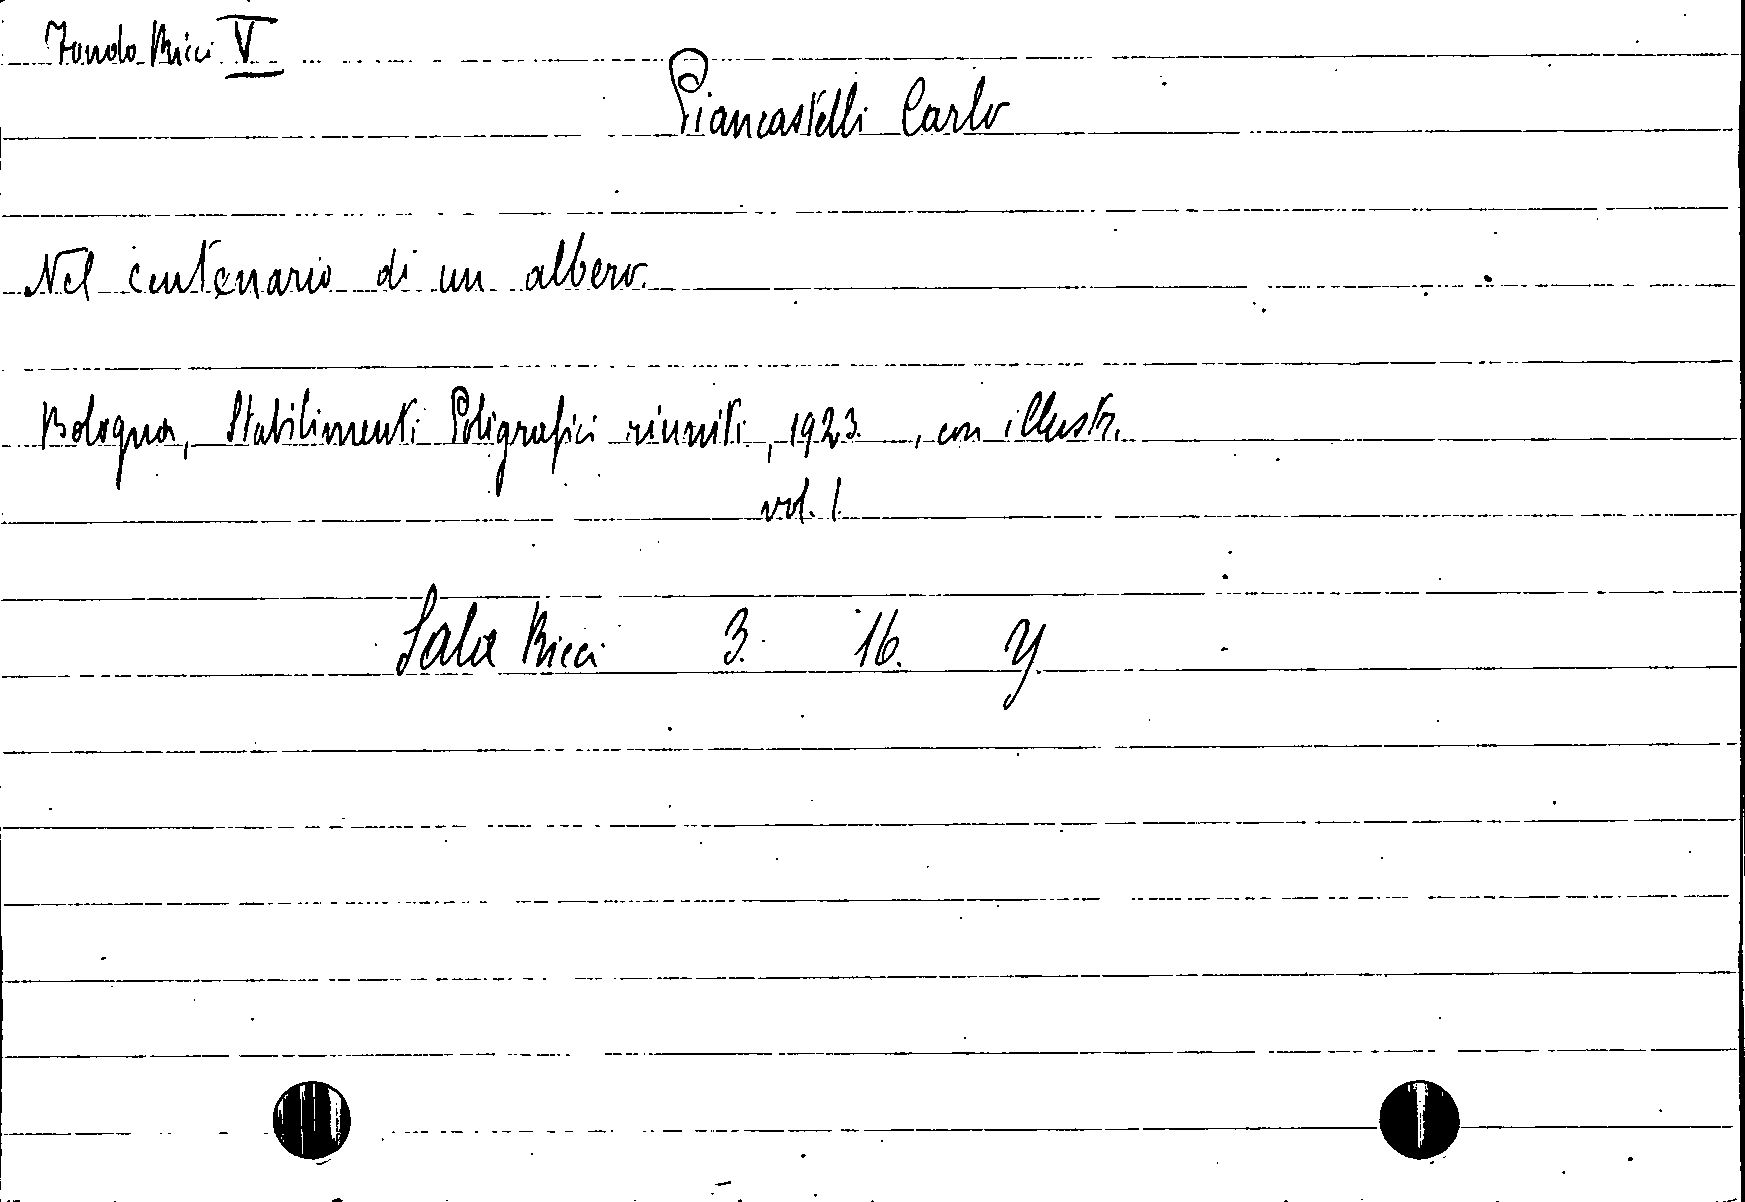 Fondo Ricci V
Piancastelli Carlo
Nel centenario di un albero.
Bologna, Stabilimenti Poligrafici riuniti, 1923. , con illustr.
vol. 1.
Sala Ricci 3. 16. Y.